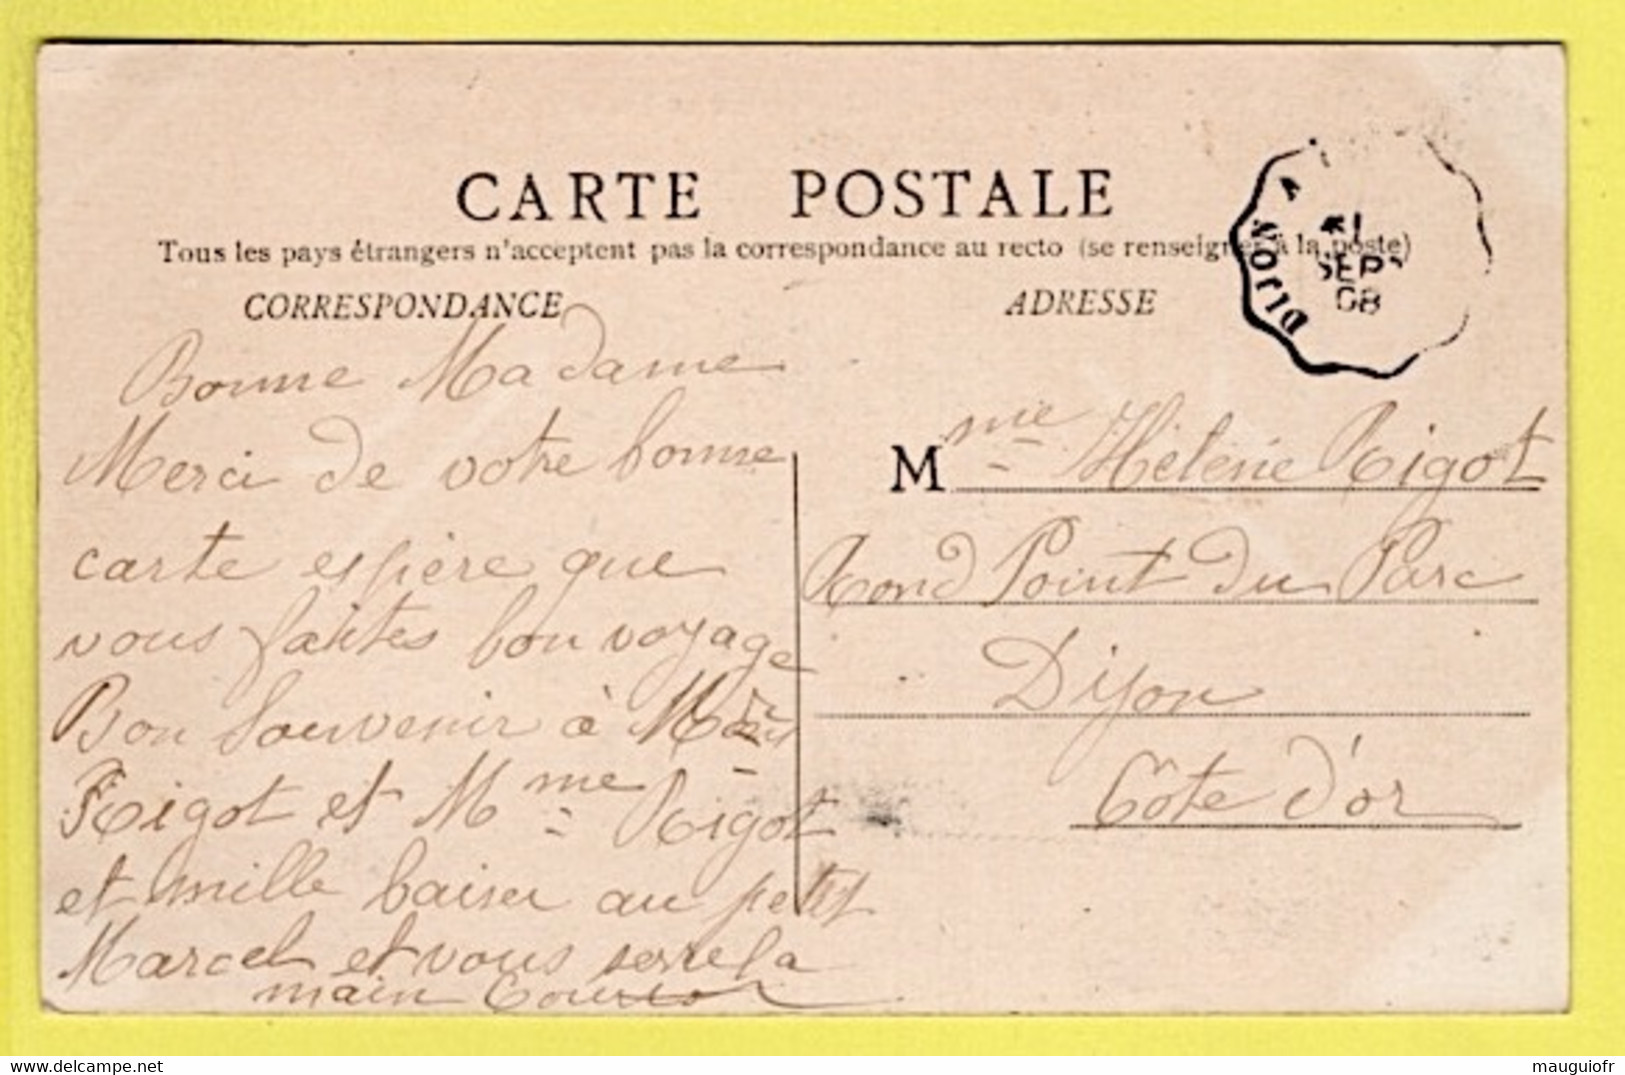 CARTE POSTALE
Tous les pays étrangers n'acceptent pas la correspondance au recto (se renseigner à la poste)
CORRESPONDANCE
ADRESSE
DIJON A
SEPT
08
Bonne Madame
Merci de votre bonne
carte espère que
vous faites bon voyage
Bon Souvenir à
Rigot et Mme Rigot
et mille baiser au petit
Marcel et vous serre la
main
Mme Hélène Rigot
Rond Point du Parc
Dijon
Côte d'or
mauguiofr